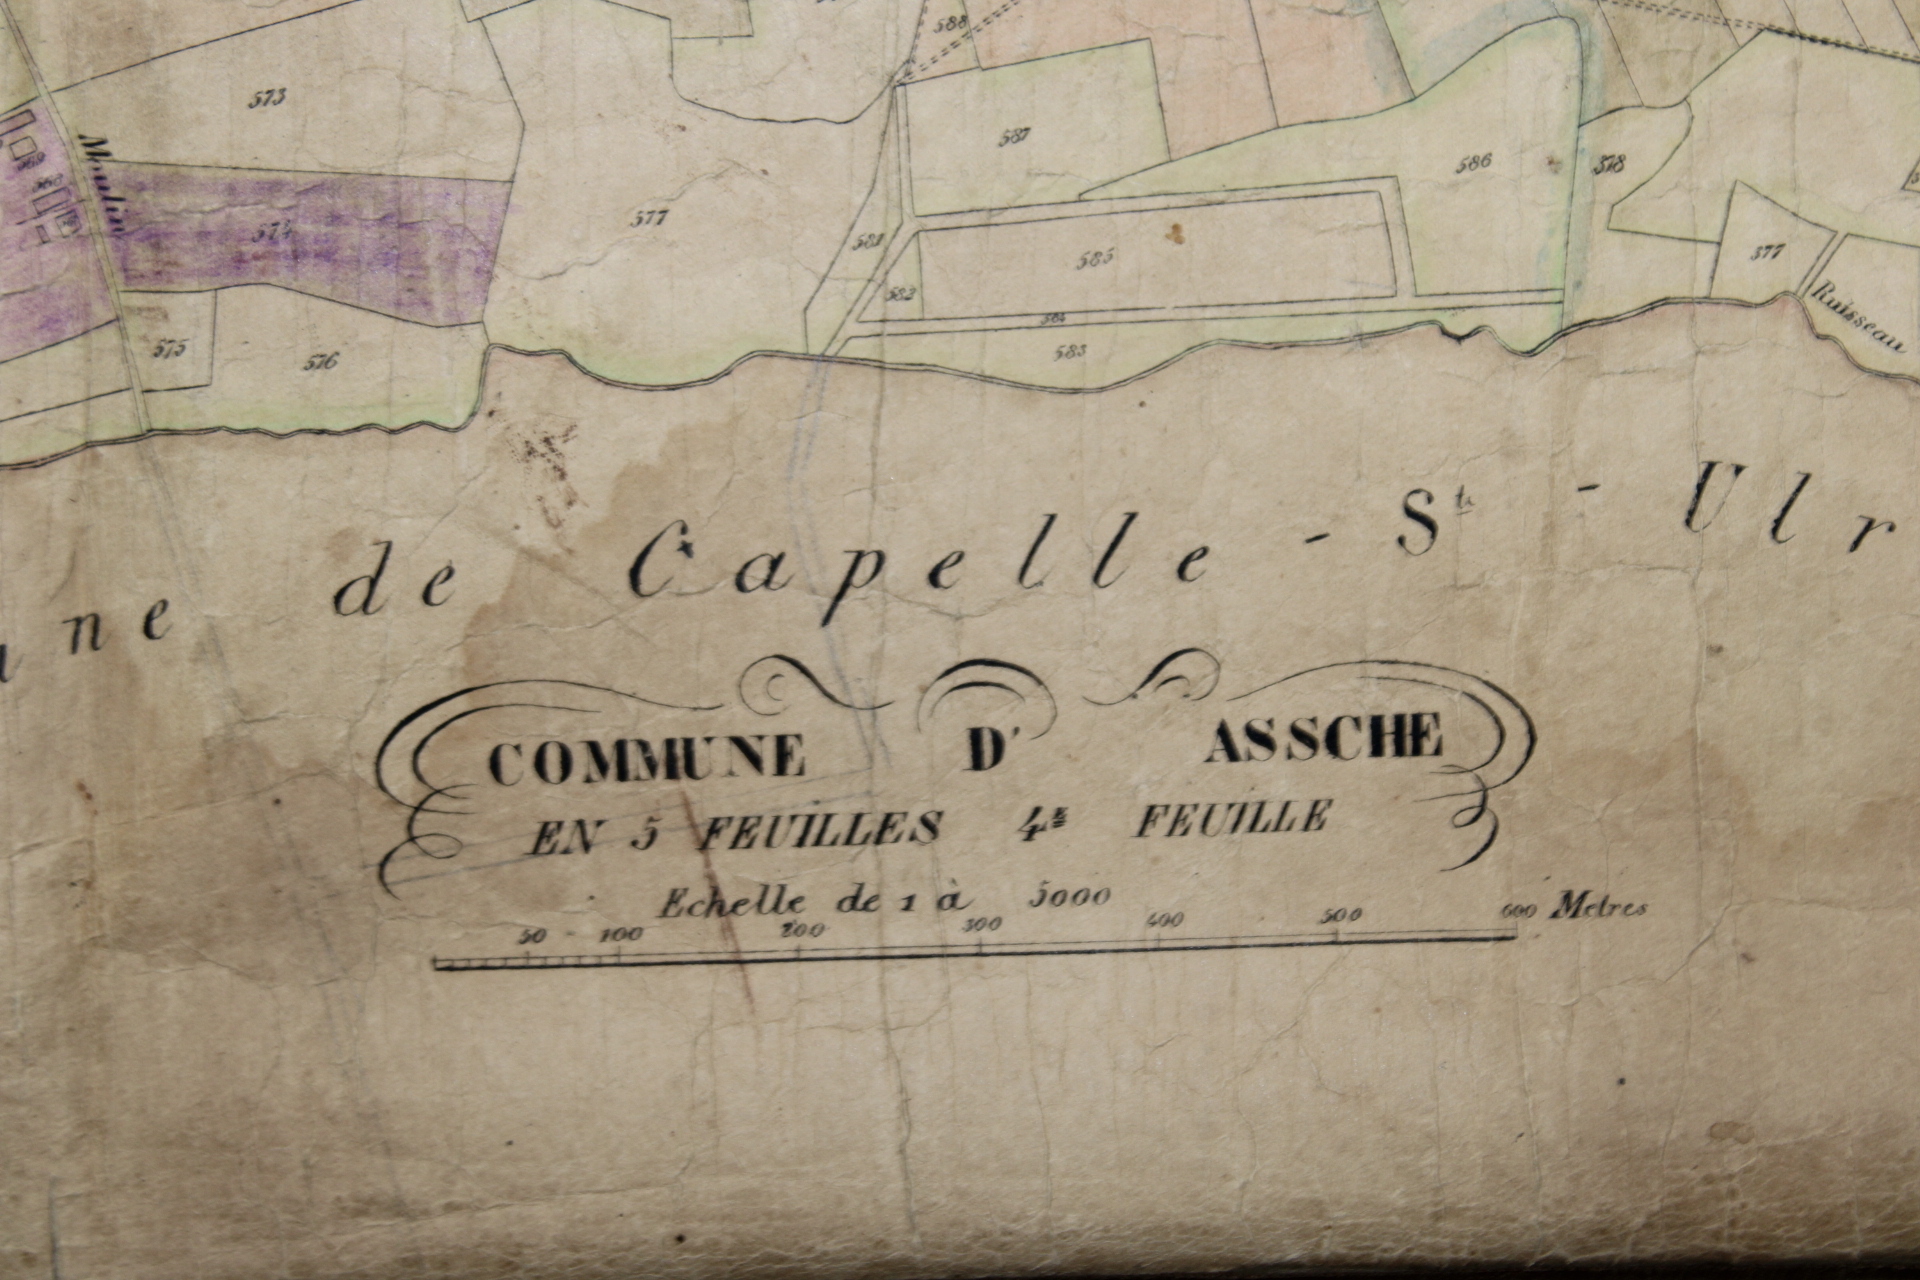 588
573
587
586
378
Moulin
574
577
581
585
377
582
Ruisseau
584
575
576
583
ne de Capelle - S^te - Ulr
COMMUNE D' ASSCHE
EN 5 FEUILLES 4^e FEUILLE
Echelle de 1 à 5000
50 100 200 300 400 500 600 Metres